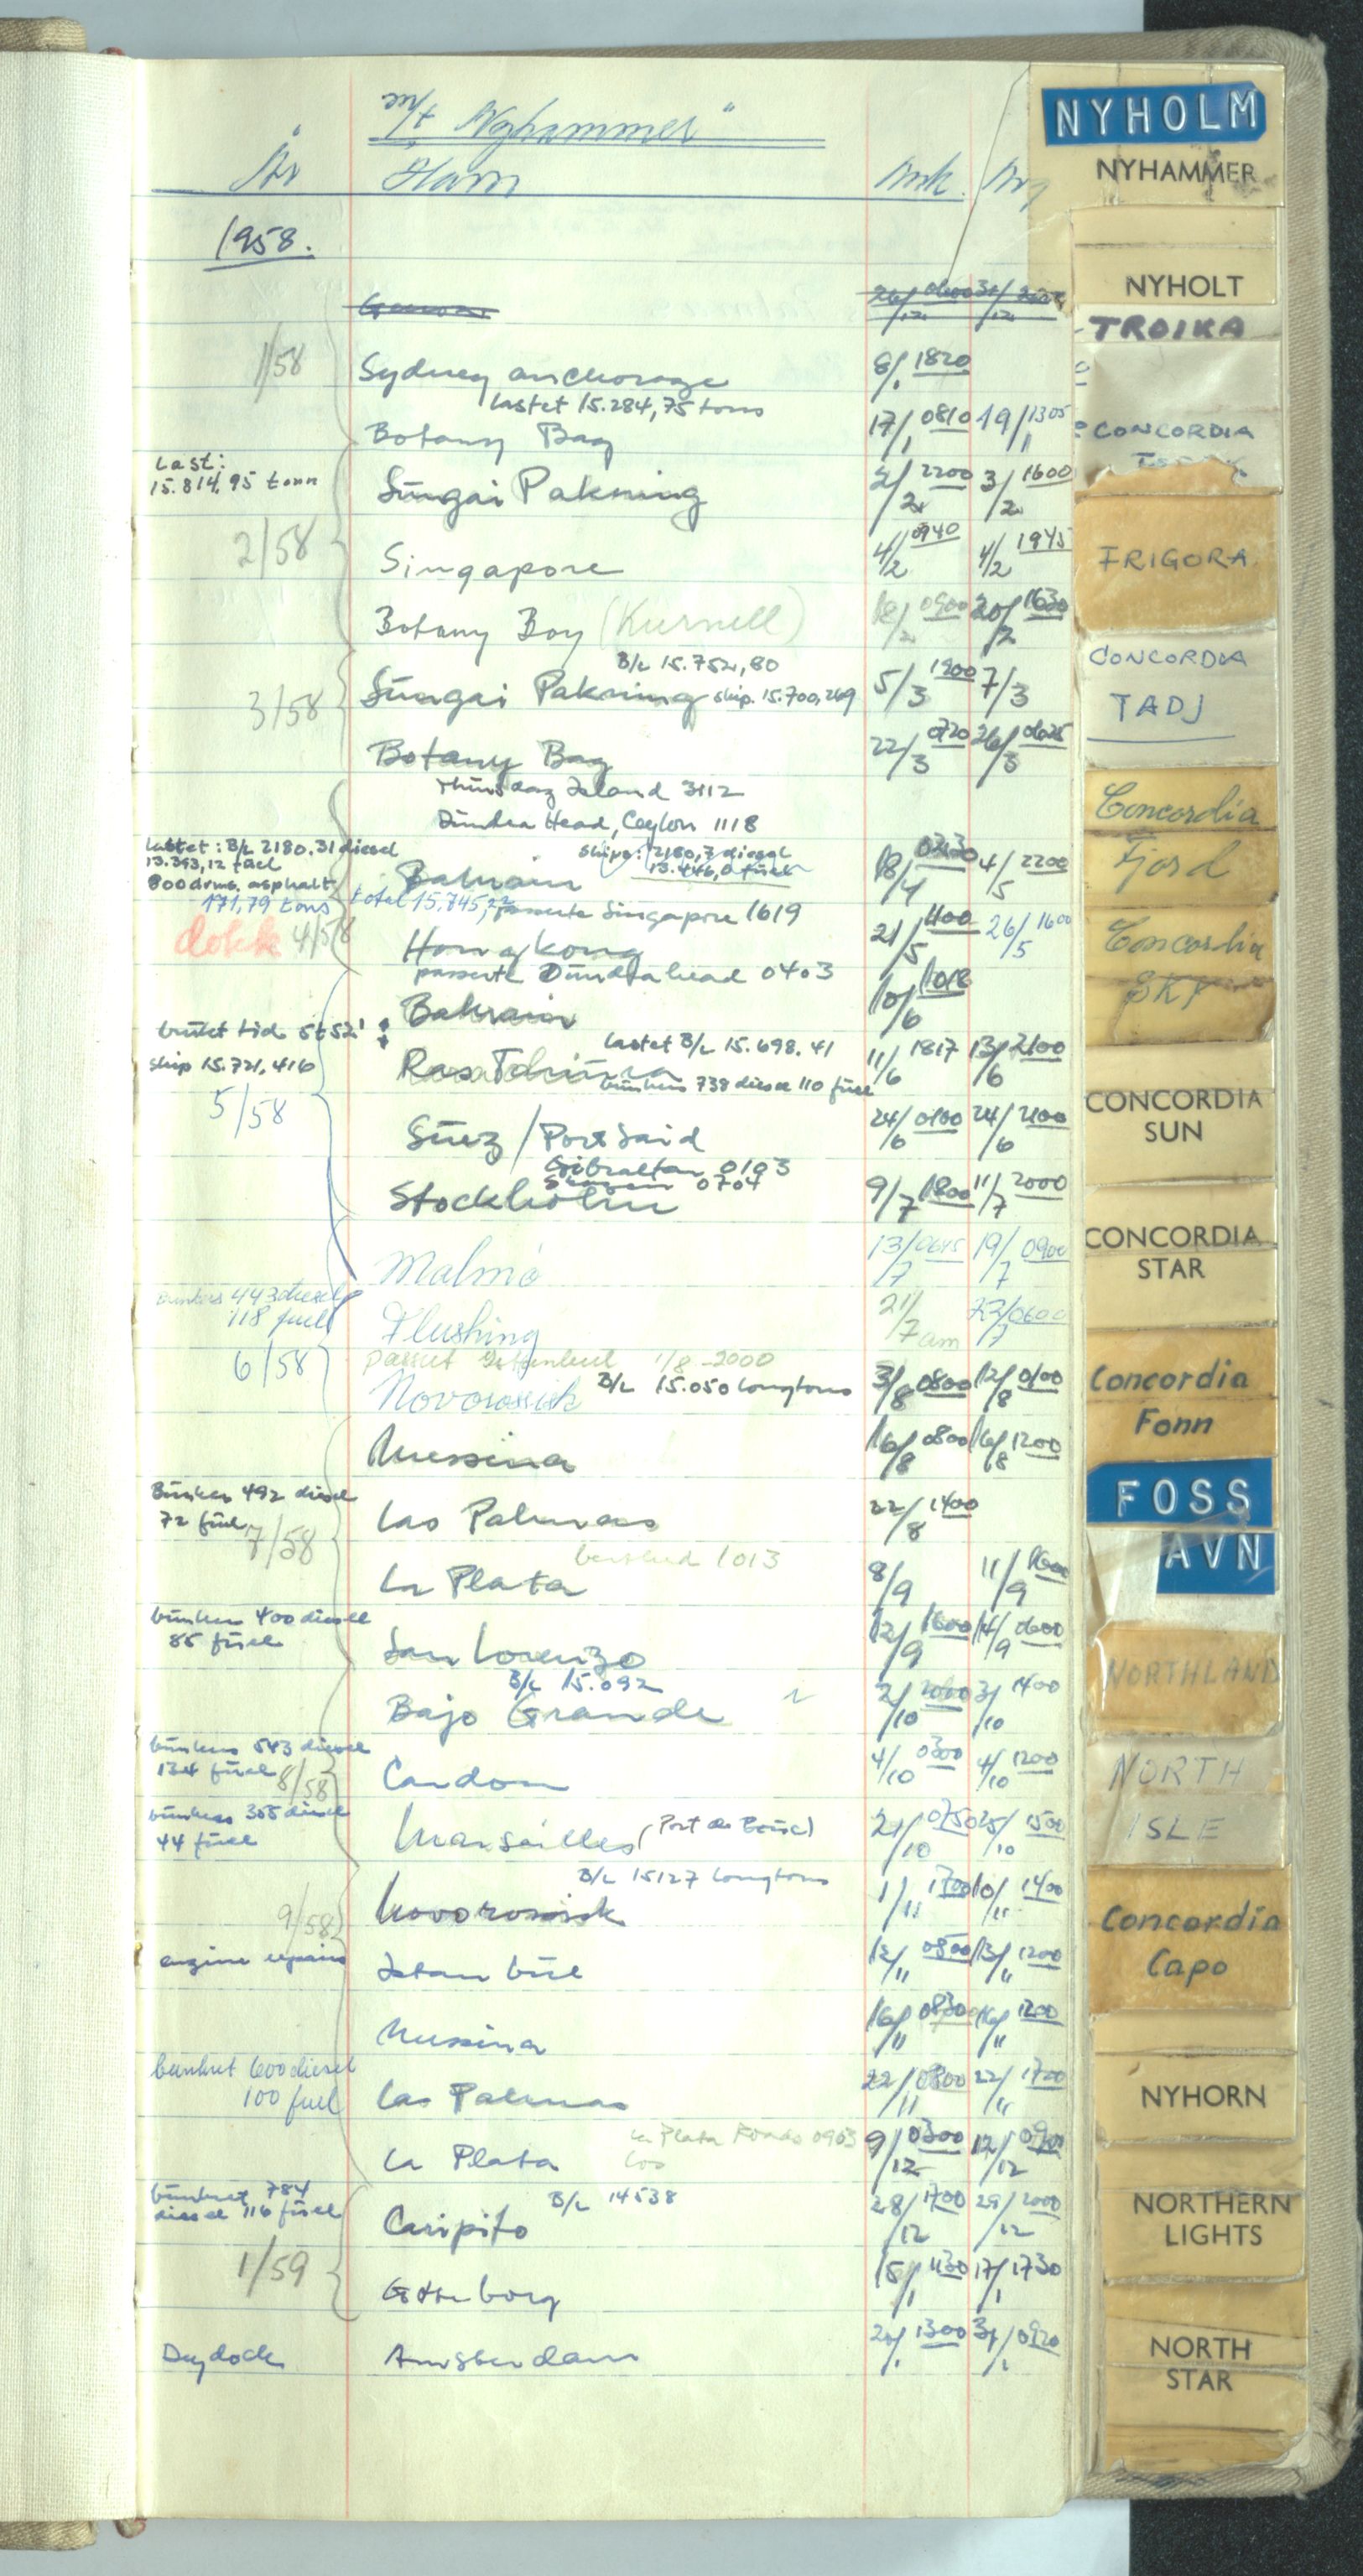 m/t "Nyhammer"
År Havn Ank. Avg
1958.
26/12 0600 31/12
1/58
Sydney anchorage 8/1 1820
lastet 15.284,75 tons
Botany Bay 17/1 0810 19/1 1305
Last:
15.814,95 tonn
Sungai Pakning 2/2 2200 3/2 1600
2/58
Singapore 4/2 0940 4/2 1945
Botany Bay (Kurnell) 18/2 0900 20/2 1630
B/L 15.752,80
3/58
Sungai Pakning skip. 15.700,269 5/3 1900 7/3
Botany Bay 22/3 0720 26/3 0625
Thursday Island 3112
Dundra Head, Ceylon 1118
lastet: B/L 2180.31 diesel
13.393,12 fuel
800 drms. asphalt
171,79 tons
skips: 2180,3 diesel
13.446,0 fuel
Bahrain 18/4 0230 4/5 2200
total 15.745,22 passerte Singapore 1619
dokk 4/58
Hongkong 21/5 1100 26/5 1600
passerte Dundra head 0403
Bahrain 10/6 1018
brukt tid 5t52'
skip 15.721,416
lastet B/L 15.698.41
Ras Tanura 11/6 1817 13/6 2100
bunkers 738 diesel 110 fuel
5/58
Suez / Port Said 24/6 0100 24/6 2100
Gibraltar 0103
Skagen 0704
Stockholm 9/7 1800 11/7 2000
Malmö 13/7 0645 19/7 0900
Bunkers 443 diesel
118 fuel
Flushing 21/7 am 22/7 0600
6/58
passert Istanbul 1/8-2000
Novorossisk B/L 15.050 longtons 3/8 0800 12/8 0100
Messina 16/8 0800 16/8 1200
Bunkers 492 diesel
72 fuel
7/58
Las Palmas 22/8 1400
1013
La Plata 8/9 11/9 1600
bunkers 400 diesel
85 fuel
San Lorenzo 12/9 1600 14/9 0600
B/L 15.092
Bajo Grande 2/10 2000 3/10 1400
bunkers 543 diesel
134 fuel 8/58
Cardon 4/10 0300 4/10 1200
bunkers 305 diesel
44 fuel
Marseilles (Port de Bouc) 21/10 0750 25/10 1500
B/L 15127 longtons
9/58
Novorossisk 1/11 1700 10/11 1400
engine repairs
Istanbul 12/11 0800 13/11 1200
Messina 16/11 0830 16/11 1200
bunkret 600 diesel
100 fuel
Las Palmas 22/11 0800 22/11 1700
La Plata Roads 0903
La Plata 9/12 0300 12/12
bunkret 784
diesel 116 fuel
B/L 14538
Caripito 28/12 1700 29/12 2000
1/59
Göteborg 15/1 1130 17/1 1730
Drydock
Amsterdam 20/1 1300 31/1 0920
NYHOLM
NYHAMMER
NYHOLT
TROIKA
CONCORDIA
FRIGORA
CONCORDIA
TADJ
Concordia
Fjord
Concordia
Sky
CONCORDIA
SUN
CONCORDIA
STAR
Concordia
Fonn
FOSS
AVN
NORTHLAND
NORTH
ISLE
Concordia
Capo
NYHORN
NORTHERN
LIGHTS
NORTH
STAR